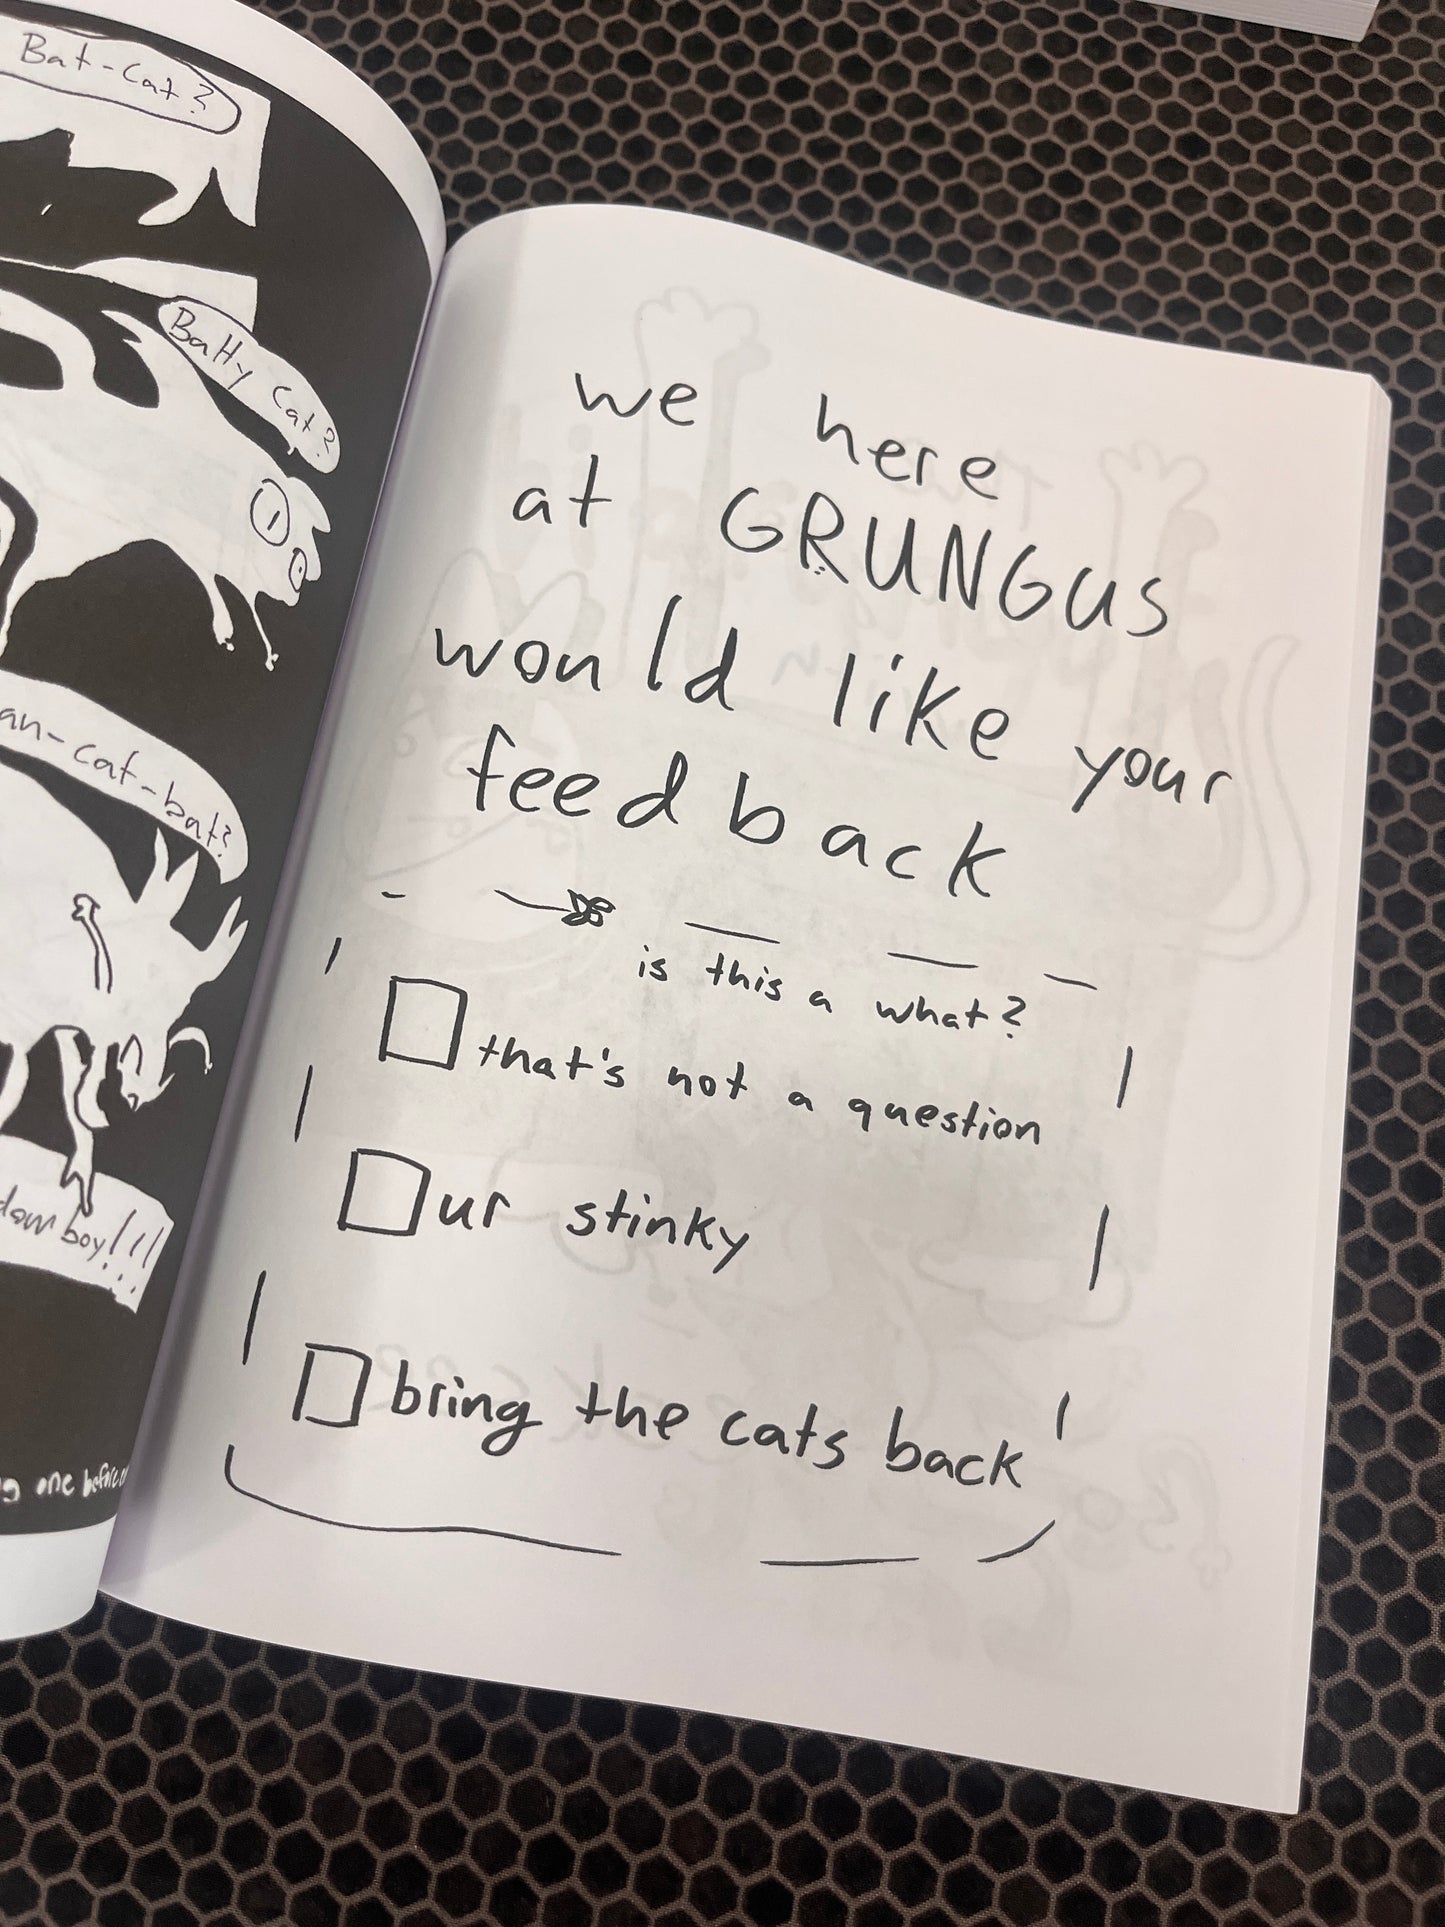 Bat-Cat?
Batty Cat?
an-cat-bat?
boy!!!
one before
we here
at GRUNGUS
would like your
feedback
is this a what?
that's not a question
ur stinky
bring the cats back